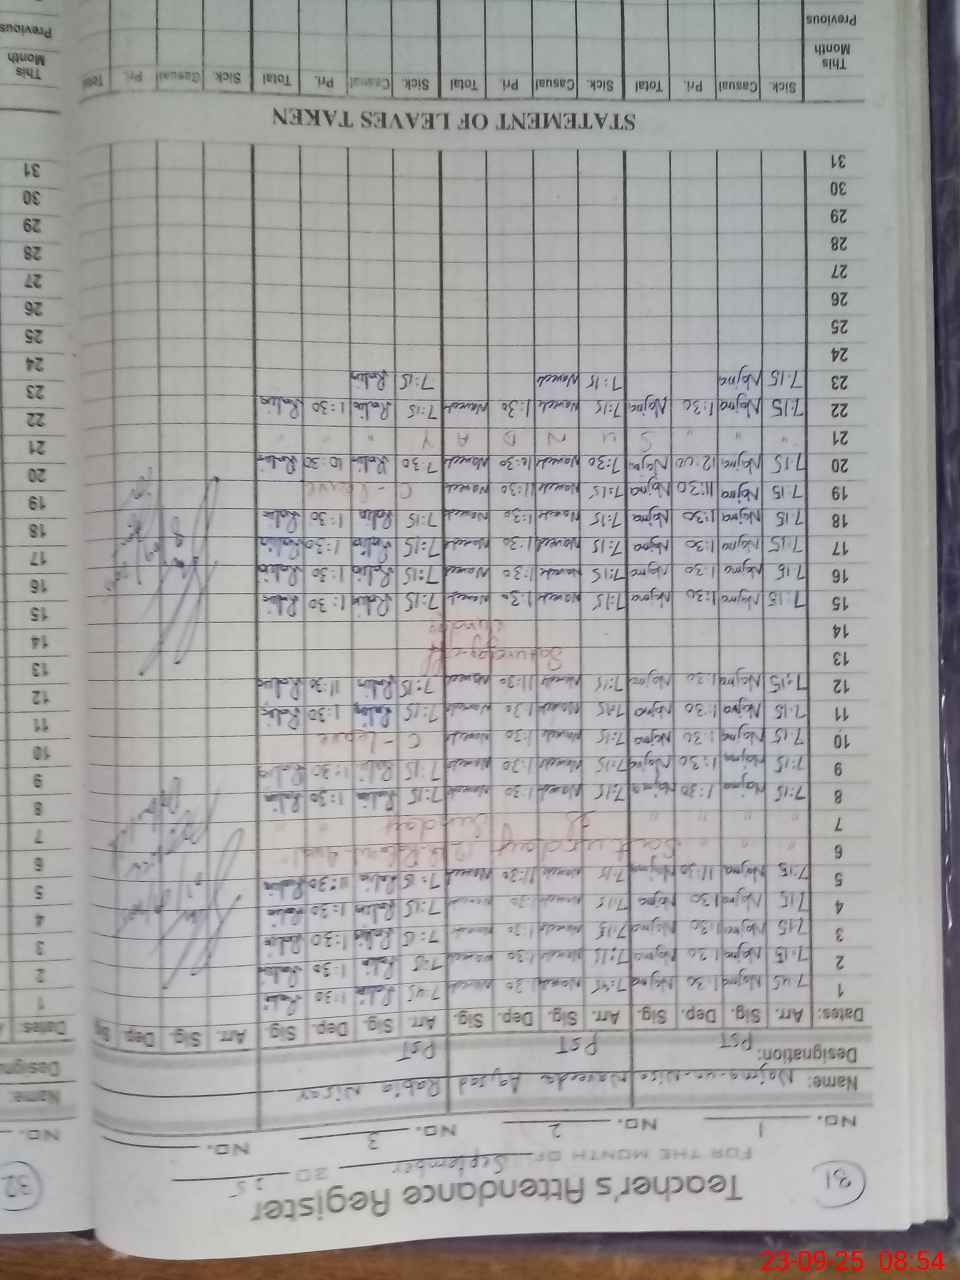 31
Teacher's Attendance Register
FOR THE MONTH OF September 20 25
NO. 1 NO. 2 NO. 3 NO.
Name: Najma-un-Nisa Naveeda Rabia Nisar
Designation: PST PST PST
Dates: Arr. Sig. Dep. Sig. Arr. Sig. Dep. Sig. Arr. Sig. Dep. Sig. Arr. Sig. Dep. Sig
1 7:45 Najma 1:30 Najma 7:45 Naveed 1:30 Naveed 7:45 Rabia 1:30 Rabia
2 7:15 Najma 1:30 Najma 7:15 Naveed 1:30 Naveed 7:15 Rabia 1:30 Rabia
3 7:15 Najma 1:30 Najma 7:15 Naveed 1:30 Naveed 7:15 Rabia 1:30 Rabia
4 7:15 Najma 1:30 Najma 7:15 Naveed 1:30 Naveed 7:15 Rabia 1:30 Rabia
5 7:15 Najma 11:30 Najma 7:15 Naveed 11:30 Naveed 7:15 Rabia 11:30 Rabia
6 " " " Saturday
7 " " " " Sunday " "
8 7:15 Najma 1:30 Najma 7:15 Naveed 1:30 Naveed 7:15 Rabia 1:30 Rabia
9 7:15 Najma 1:30 Najma 7:15 Naveed 1:30 Naveed 7:15 Rabia 1:30 Rabia
10 7:15 Najma 1:30 Najma 7:15 Naveed 1:30 Naveed C - Leave
11 7:15 Najma 1:30 Najma 7:15 Naveed 1:30 Naveed 7:15 Rabia 1:30 Rabia
12 7:15 Najma 1:30 Najma 7:15 Naveed 11:30 Naveed 7:15 Rabia 11:30 Rabia
13 Saturday off
14 Sunday
15 7:15 Najma 1:30 Najma 7:15 Naveed 1:30 Naveed 7:15 Rabia 1:30 Rabia
16 7:15 Najma 1:30 Najma 7:15 Naveed 1:30 Naveed 7:15 Rabia 1:30 Rabia
17 7:15 Najma 1:30 Najma 7:15 Naveed 1:30 Naveed 7:15 Rabia 1:30 Rabia
18 7:15 Najma 1:30 Najma 7:15 Naveed 1:30 Naveed 7:15 Rabia 1:30 Rabia
19 7:15 Najma 11:30 Najma 7:15 Naveed 11:30 Naveed C - Leave
20 7:15 Najma 12:00 Najma 7:30 Naveed Naveed 7:30 Rabia 10:30 Rabia
21 " " " S U N D A Y " " "
22 7:15 Najma 1:30 Najma 7:15 Naveed 1:30 Naveed 7:15 Rabia 1:30 Rabia
23 7:15 Najma 7:15 Naveed 7:15 Rabia
24
25
26
27
28
29
30
31
STATEMENT OF LEAVES TAKEN
Sick. Casual Pri. Total Sick. Casual Pri. Total Sick. Casual Pri. Total Sick. Casual Pri. Total
This Month
Previous
32
NO.
Name:
Designa
Dates:
1
2
3
4
5
6
7
8
9
10
11
12
13
14
15
16
17
18
19
20
21
22
23
24
25
26
27
28
29
30
31
This Month
Previous
23-09-25 08:54